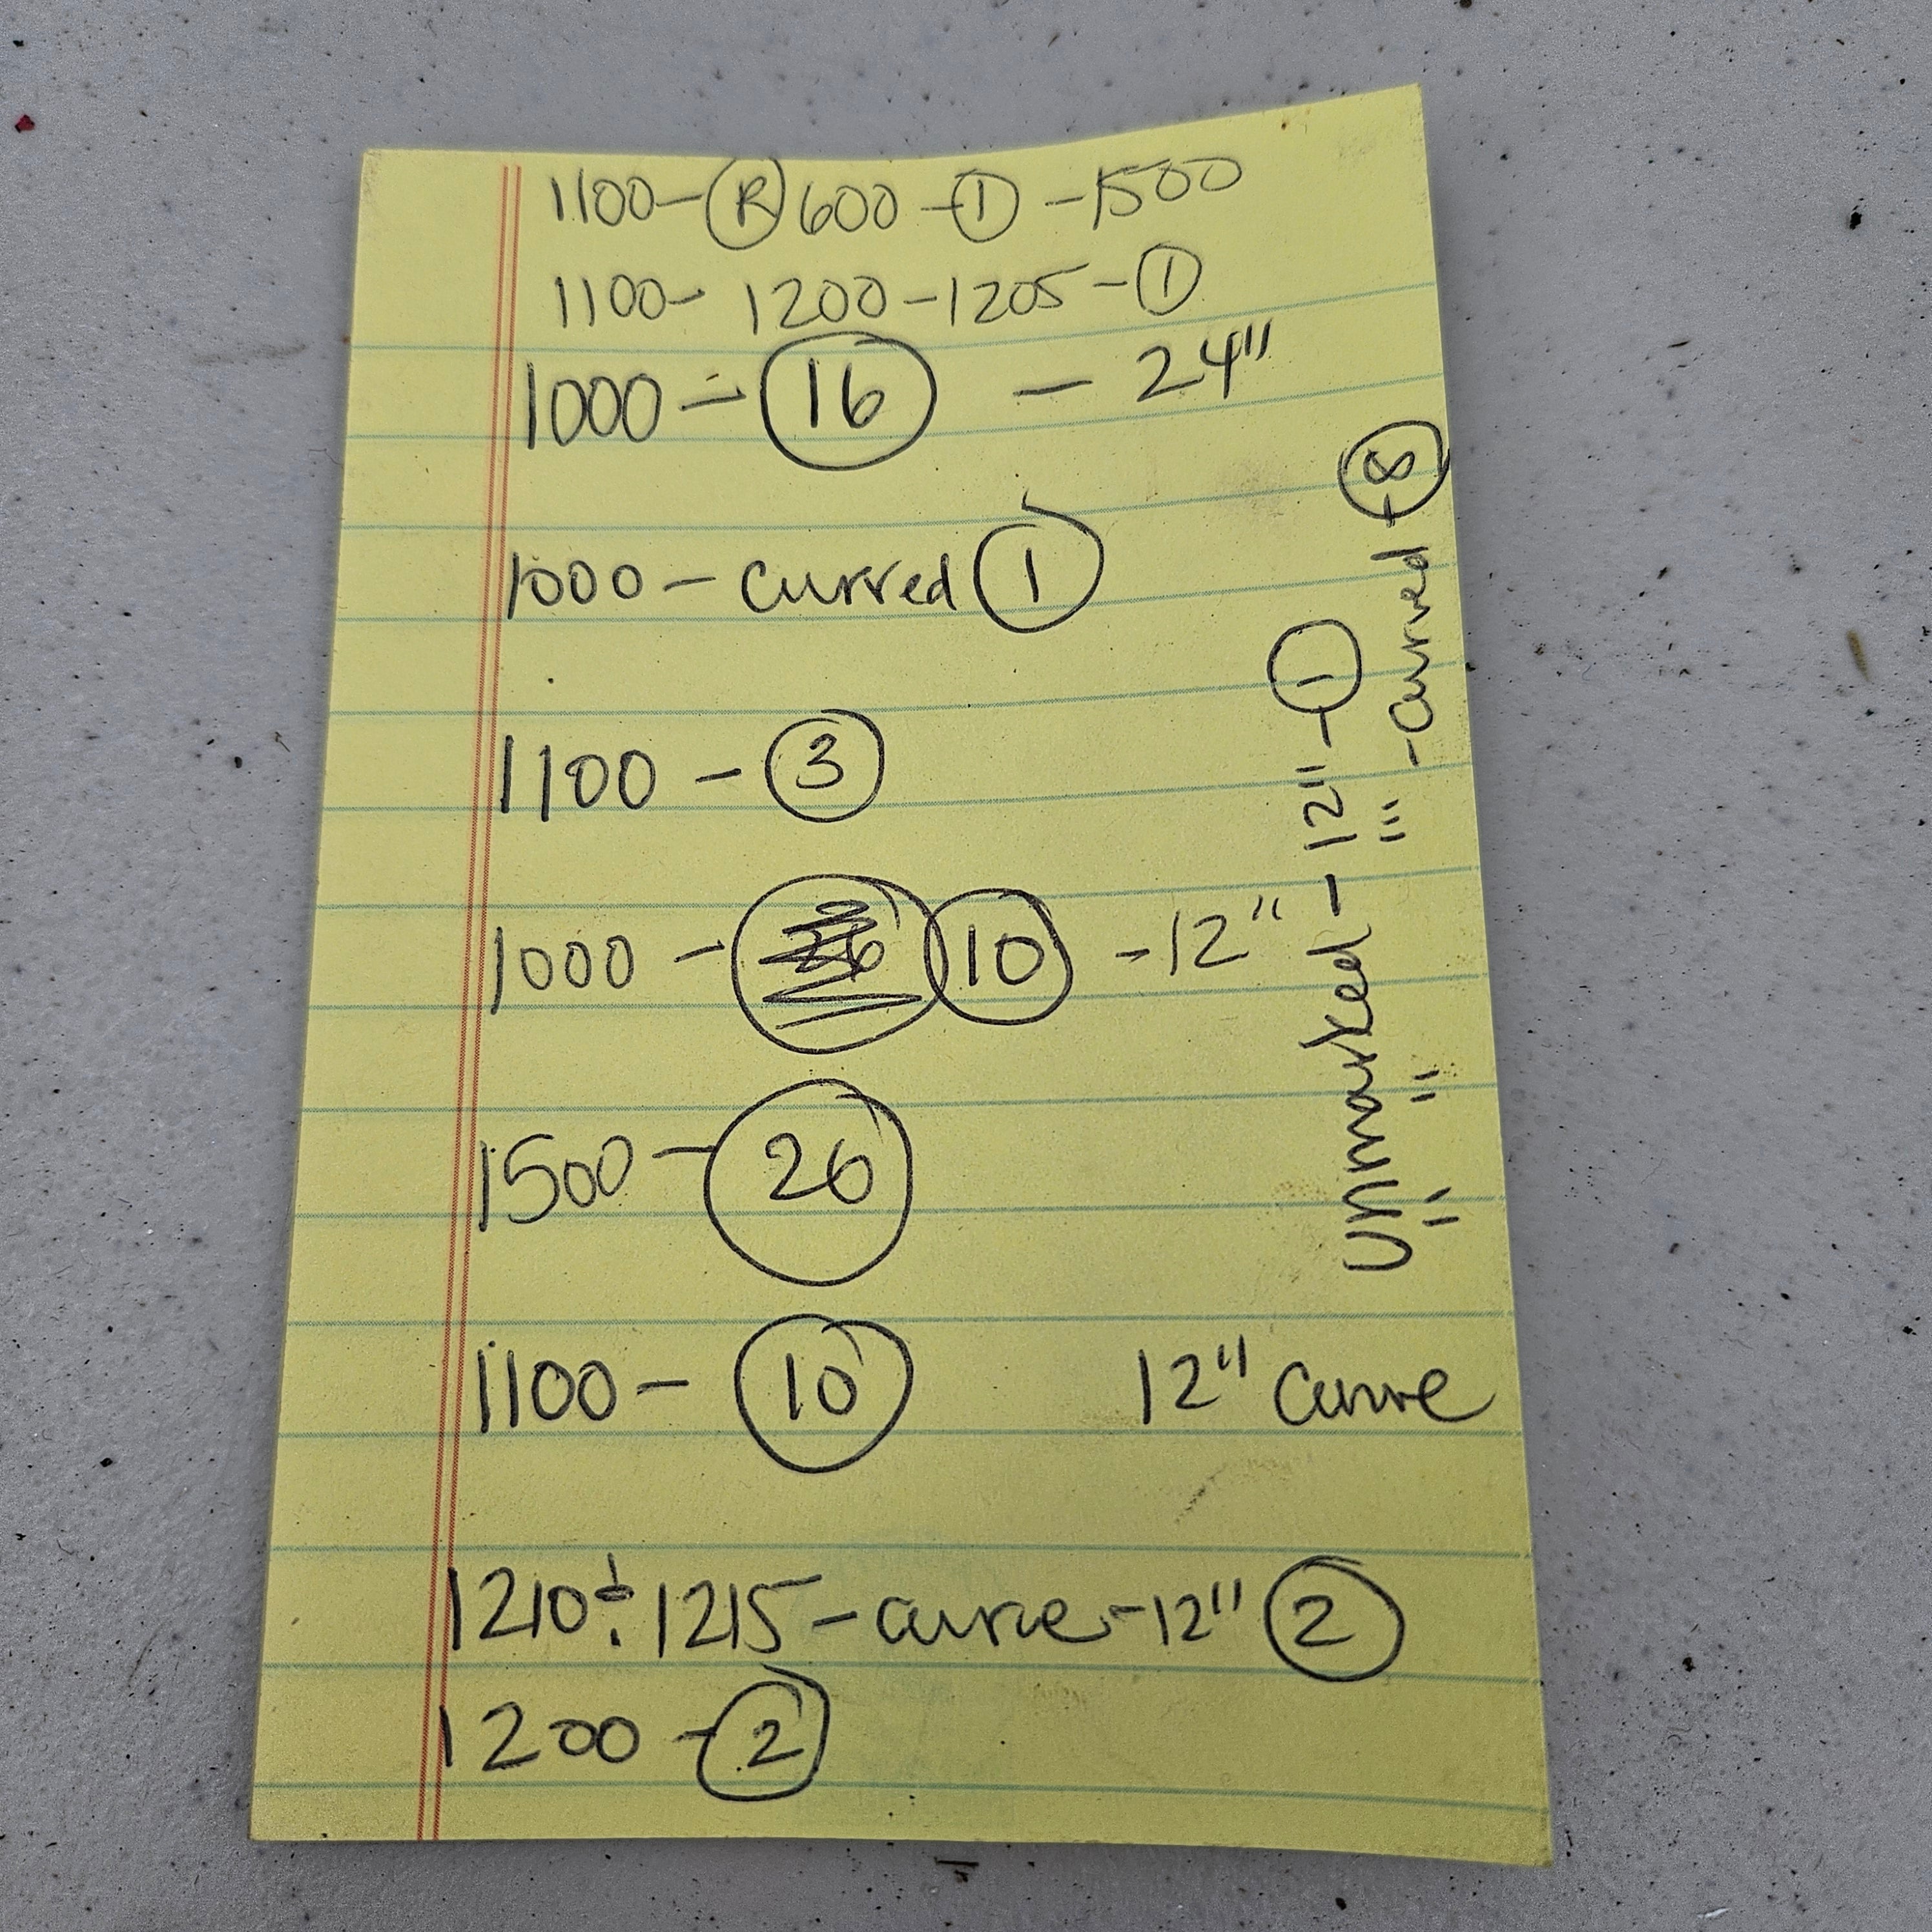 1100 - R 600 - 1 - 1500
1100 - 1200 - 1205 - 1
1000 - 16 - 24"
1000 - curved 1
1100 - 3
1000 - 10 - 12"
1500 - 26
1100 - 10 12" curve
1210 ÷ 1215 - curve - 12" 2
1200 - 2
Unmarked - 12" - 1
" " " - curved - 8